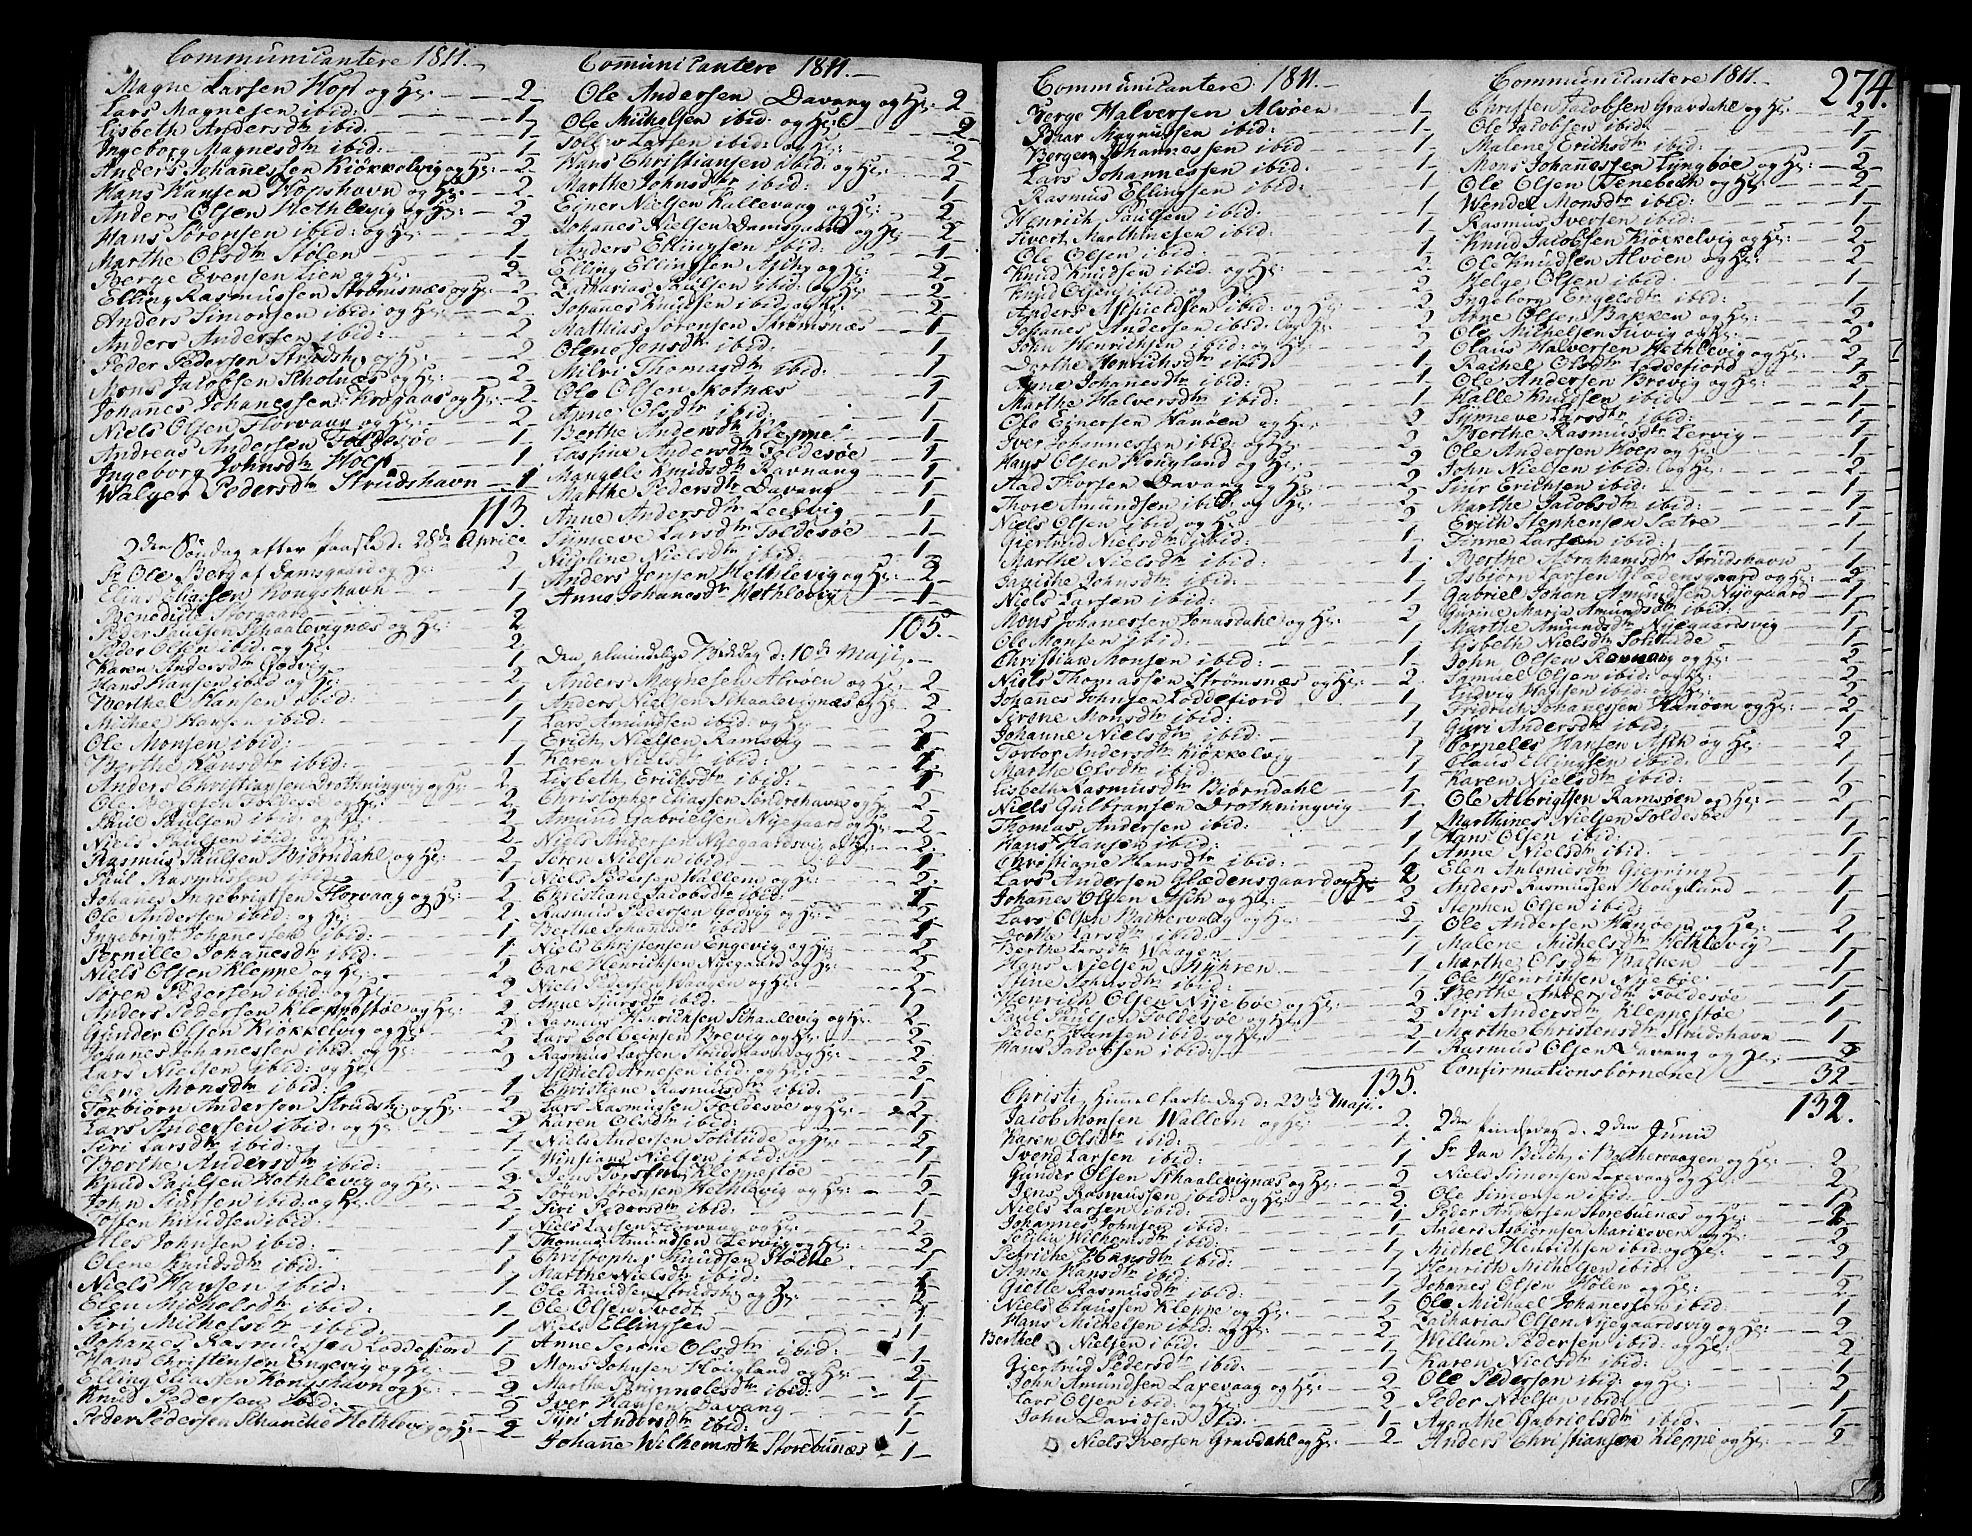 Communicantere 1811.
Magne Larsen Hop og H: 2
Lars Magnesen ibid: 1
Lisbeth Andersdtr ibid 1
Ingeborg Magnesdtr ibid: 1
Anders Johanessen Kiøkkelvig og H: 2
Hans Hansen Hopshavn og H: 2
Anders Olsen Hethlevig og H: 2
Hans Sørensen ibid: og H: 2
Marthe Olsdtr Stølen 1
Børge Evensen Lien og H: 2
Elling Rasmussen Strømsnæs og H: 2
Anders Simonsen ibid: og H: 2
Anders Andersen ibid: 2
Peder Pedersen Strudsh: og H: 2
Mons Jacobsen Skotnæs og H: 2
Johanes Johanessen Krogaas og H: 2
Niels Olsen Storvaag og H:
Andreas Andersen Foldesøe 1
Ingeborg Johnsdtr Hoep 1
Walger Pedersdtr Strudshavn 1
113.
2den Søndag efter Paaske d: 28de April
Fr Ole Berg af Damsgaard og H: 2
Elias Eliassen Kongshavn 1
Benedicte Storgaard 1
Peder Paulsen Skaalevignæs og H: 2
Peder Olsen ibid: og H: 2
Karen Andersdtr Godvig 1
Hans Hansen ibid og H: 2
Berthel Hansen ibid: 1
Michel Hansen ibid: 1
Ole Monsen ibid: 1
Berthe Hansdtr ibid: 1
Anders Christiansen Drothningvig og H: 2
Ole Børgesen Foldesøe og H: 2
Poul Paulsen ibid: og H: 2
Niels Paulsen ibid: og H: 2
Rasmus Paulsen Biørndahl og H: 2
Paul Rasmussen ibid: 1
Johanes Ingebrigtsen Florvaag og H: 2
Ole Andersen ibid: og H: 2
Ingebrigt Johanessen ibid: 1
Pernille Johanesdtr ibid: 1
Niels Olsen Kleppe og H: 2
Søren Pedersen ibid: og H: 2
Anders Pedersen Kleppestøe og H: 2
Gunder Olsen Kiøkkelvig og H: 2
Johanes Johanessen ibid: og H: 2
Lars Nielsen ibid: og H: 2
Olene Monsdtr ibid: 1
Torbiørn Andersen Strudsh: og H: 2
Lars Andersen ibid: og H: 2
Siri Larsdtr ibid: 1
Berthe Andersdtr ibid: 1
Knud Paulsen Hethlevig og H: 2
John Siursen ibid: og H: 2
Tosten Knudsen ibid: 1
Atles Johnsen ibid: 1
Olene Knudsdtr ibid: 1
Niels Hansen ibid: 1
Elen Michelsdtr ibid: 1
Siri Michelsdtr ibid: 1
Johanes Rasmussen Loddefiord 1
Hans Christensen Engevig og H: 2
Elling Eliassen Kongshavn og H: 2
Knud Pedersen ibid: 2
Peder Pedersen Skanche Hethlevig og H: 2
Comunicantere 1811.
Ole Andersen Davang og H: 2
Ole Michelsen ibid: og H: 2
Tollev Larsen ibid: og H: 2
Hans Christiansen ibid: og H: 2
Marthe Johnsdtr ibid: 1
Ejner Nielsen Kallevaag og H: 2
Johanes Nielsen Damsgaard og H: 2
Anders Ellingsen ibid: 1
Elling Ellingsen Ask og H: 2
Zacharias Paulsen ibid: og H: 2
Johanes Knudsen ibid: og H: 2
Mathias Sørensen Strømsnæs 1
Olene Jensdtr ibid: 1
Milvi Thomasdtr ibid: 1
Ole Olsen Skotnæs 1
Anne Olsdtr ibid: 1
Berthe Andersdtr Kleppe 1
Andersdtr Foldesøe 1
Magele Knudsdtr Ravnang 1
Marthe Pedersdtr Davang 1
Anne Andersdtr Leervig 1
Synneve Larsdtr Foldesøe 1
Nicoline Nielsdtr ibid: 1
Anders Jensen Hethlevig og H: 2
Anne Johanesdtr Hethlevig 1
105.
Den almindelige Bededag d: 10de Maji
Anders Magnesen Alvøen og H: 2
Anders Nielsen Skaalevignæs og H: 2
Lars Amundsen ibid: og H: 2
Erich Nielsen Ramsvig 1
Karen Nielsdtr ibid: 1
Lisbeth Erichsdtr ibid: 1
Christopher Eliassen Søndrehavn og H: 2
Amund Gabrielsen Nyegaard og H: 2
Niels Andersen Nyegaardsvig og H: 2
Søren Nielsen ibid: 1
Niels Pedersen Wallem og H: 2
Christiane Jacobsdtr ibid: 1
Rasmus Pedersen Godvig og H: 2
Berthe Johansdtr ibid: 1
Niels Christensen Engevig og H: 2
Carl Henrichsen Nyegaard og H: 2
Niels Pedersen Waagen og H: 2
Anne Siursdtr ibid: 1
Rasmus Henrichsen Skaalevig og H: 2
Lars Colbeinsen Brevig og H: 2
Rasmus Larsen Strudshavn og H: 2
Askield Arnesen ibid: og H: 2
Christiane Rasmusdtr ibid: 1
Lars Rasmussen Foldesøe og H: 2
Karen Olsdtr ibid: 1
Niels Andersen Solitude og H: 2
Winsians Nielsen ibid: 1
Jens Torsen Kleppestøe 1
Søren Sørensen Hethlevig og H: 2
Siri Pedersdtr ibid: 1
Niels Larsen Florvaag og H: 2
Thomas Amundsen Lervig og H: 2
Christopher Knudsen Støele 1
Marthe Nielsdtr ibid: 1
Ole Knudsen Strudsh: og H: 2
Ole Olsen Tvedt 1
Niels Ellingsen 1
Anne Serene Olsdtr ibid: 1
Mons Johnsen Hougland og H: 2
Marthe Brynnelsdtr ibid: 1
Iver Hansen Davang 1
Siri Andersdtr ibid: 1
Johanne Wilhemsdtr Storebunæs 1
Communicantere 1811.
Børge Halversen Alvøen 1
Peder Magnussen ibid: 1
Børgen Johannessen ibid 1
Lars Johannessen ibid: 1
Rasmus Ellingsen ibid: 1
Henrich Paulsen ibid: 1
Sivert Marthinesen ibid: 1
Ole Olsen ibid 1
Knud Knudsen ibid: og H: 2
Knud Olsen ibid: og H: 2
Anders Askieldsen ibid: og H: 2
Johanes Andersen ibid: og H: 2
John Henrichsen ibid: og H: 2
Dorthe Henrichsdtr ibid 1
Anne Johanesdtr ibid: 1
Marthe Halversdtr ibid: 1
Ole Ejnersen Hanøen 2
Iver Johannessen ibid: og H: 2
Hans Olsen Hougland og H: 2
Aad Thorsen Davang og H: 2
Thore Amundsen ibid og H: 2
Niels Olsen ibid og H: 2
Giertrud Nielsdtr ibid: 1
Marthe Nielsdtr ibid: 1
Janiche Johnsdtr ibid: 1
Niels Larsen ibid: 1
Mons Johanessen Jonasdahl og H: 2
Ole Monsen ibid: 1
Christian Monsen ibid: 1
Niels Thomassen Strømsnæs og H: 2
Johanes Johnsen Loddefiord 1
Serene Monsdtr ibid: 1
Johanne Nielsdtr ibid: 1
Torbor Andersdtr Kiøkkelvig 1
Marthe Olsdtr ibid: 1
Lisbeth Rasmusdtr Biørndahl 1
Niels Gulbransen Drothningvig 1
Thomas Andersen ibid: 1
Hans Hansen ibid: 1
Christiane Hansdtr ibid: 1
Lars Andersen Glædensgaard og H: 2
Johanes Olsen Ask og H: 2
Lars Olsen Bakkervaag og H: 2
Dorthe Larsdtr ibid: 1
Berthe Larsdtr Waagen 1
Hans Nielsen Myhren 1
Stine Johnsdtr ibid: 1
Henrich Olsen Nyebøe og H: 2
Paul Paulsen Foldesøe og H: 2
Peder Hansen ibid: og H: 2
Hans Jacobsen ibid: 1
135.
Christi Himmelfarts Dag d: 23de Maji
Jacob Monsen Wallem 2.
Karen Olsdtr ibid: 1.
Svend Larsen ibid: 1
Gunder Olsen Skaalevignæs og H: 2
Jens Rasmussen ibid: og H: 2.
Niels Larsen ibid: 1.
Johannes Johnsen ibid: 1
Wilhemsdtr ibid: 1
Hansdtr ibid: 1
Anne Hansdtr ibid: 1
Giette Rasmusdtr ibid: 1
Niels Claussen Kleppe og H: 2
Hans Michelsen ibid: og H: 2
Berthel Nielsen ibid: 1
Giertrud Pedersdtr ibid: 1
John Amundsen Laxevaag og H: 2
Lars Olsen ibid: og H: 2
John Davidsen ibid: 1
Niels Iversen Gravdahl og H: 2
Communicantere 1811.
274.
Christen Jacobsen Gravdahl og H: 2
Ole Jacobsen ibid: 1
Malene Erichsdtr ibid: 1
Mons Johanessen Lyngbøe og H: 2
Ole Olsen Tenebech og H: 2
Wendel Monsdtr ibid: 1
Rasmus Iversen ibid: 1
Knud Jacobsen Kiøkkelvig og H: 2
Ole Knudsen Alvøen og H: 2
Helge Olsen ibid 1
Ingeborg Engelsdtr ibid: 1
Arne Olsen Bakken og H: 2.
Ole Michelsen Juvig og H: 2
Claus Halversen Hethlevig og H: 2
Rachel Olsdtr Loddefiord 1
Ole Andersen Brevig og H: 2
Halle Knudsen ibid: 1
Synneve Larsdtr ibid: 1
Berthe Rasmusdtr Lervig 1
Ole Andersen Hoep og H: 2
John Nielsen ibid: og H: 2
Siur Erichsen ibid: 1
Marthe Jacobsdtr ibid: 1
Erich Stephensen Sætre 1
Tinne Larsen ibid: 1
Berthe Abrahamsdtr Strudshavn 1
Asbiørn Larsen Glædensgaard og H: 2
Gabriel Johan Amundsen Nyegaard 1
Gurine Maria Amundsdtr ibid: 1
Marthe Amundsdtr Nyegaardsvig 1
Lisbeth Nielsdtr Solitude 1
John Olsen Ravnang og H: 2
Samuel Olsen ibid: og H: 2
Ludvig Hansen ibid: og H: 2
Fridrich Johanessen Hanøen og H: 2
Guri Andersdtr ibid: 1
Corneles Hansen Ask og H: 2
Claus Ellingsen ibid: 1
Karen Nielsdtr ibid: 1
Ole Albrigtsen Ramsøen og H: 2
Marthines Nielsen Foldesøe 1
Hans Olsen ibid: 1
Anne Nielsdtr ibid: 1
Elen Antonesdtr Gierring 1
Anders Rasmussen Hougland 1
Stephen Olsen ibid: 1
Ole Andersen Hanøen og H: 2
Malene Michelsdtr Hethlevig 1
Marthe Olsdtr Bakken 1
Ole Henrichsen Nyebøe 1
Berthe Andersdtr Foldesøe 1
Siri Andersdtr Kleppestøe 1
Marthe Christensdtr Strudshavn 1
Rasmus Olsen Davang og H: 2
Confirmationsbørnene 32
132.
2den Pindsedag d. 2den Junii
Fr Jan Buch i Bakkervaagen og H: 2
Niels Simonsen Laxevaag og H: 2
Ole Simonsen ibid: 1
Peder Andersen Storebunæs og H: 2
Anders Asbiørnsen Marikoven og H: 2
Michel Henrichsen ibid: og H: 2
Henrich Michelsen ibid: 1
Johanes Olsen Holen og H: 2
Ole Michael Johanessen ibid: 1
Zacharias Olsen Nyegaardsvig og H: 2
Willum Pedersen ibid: og H: 2
Karen Nielsdtr ibid: 1
Ole Pedersen ibid: og H: 2
Peder Nielsen ibid: 1
Aganthe Gabrielsdtr ibid: 1
Anders Christiansen Kleppe og H: 2